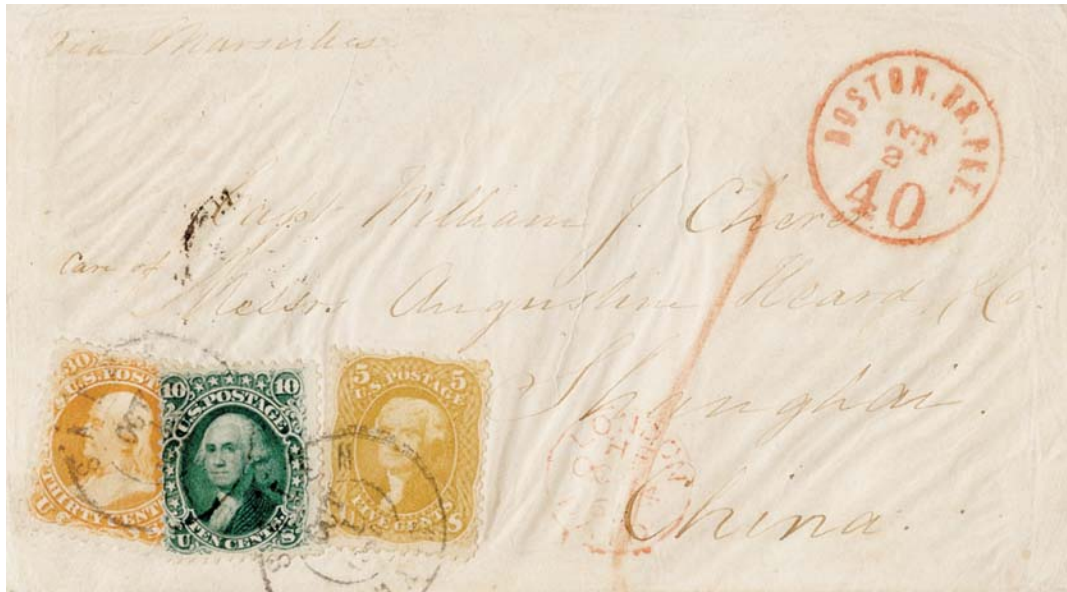 via Marseilles
BOSTON. BR. PKT.
OCT
2
40
Capt William J.
care of
Messrs. Augustine Heard & Co.
Shanghai.
China.
LONDON
30
U.S. POSTAGE
THIRTY CENTS
U S
10 10
U.S. POSTAGE
TEN CENTS
U S
5 5
U.S. POSTAGE
FIVE CENTS
U S